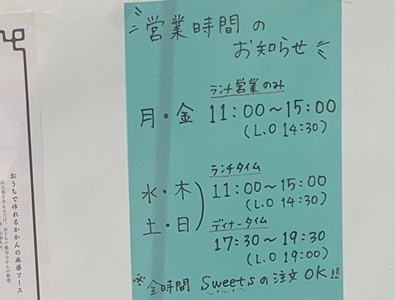 営業時間の
お知らせ
ランチ営業のみ
月・金 11:00～15:00
(L.O 14:30)
ランチタイム
水・木 11:00～15:00
(L.O 14:30)
土・日 ディナータイム
17:30～19:30
(L.O 19:00)
※全時間 Sweetsの注文OK!!
おうちで作れるかかんの麻婆ソース